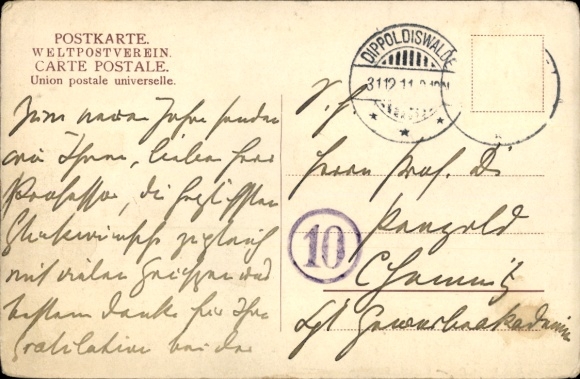 POSTKARTE.
WELTPOSTVEREIN.
CARTE POSTALE.
Union postale universelle.
Zum neuen Jahre senden
wir Ihnen, lieber Herr
Professor, die herzlichsten
Glückwünsche zugleich
mit vielen Grüssen und
bestem Danke für Ihre
Gratulation bei der
DIPPOLDISWALDE
31 12 11
10
Herrn Prof. Dr.
Pangold
Chemnitz
Kgl Gewerbeakademie